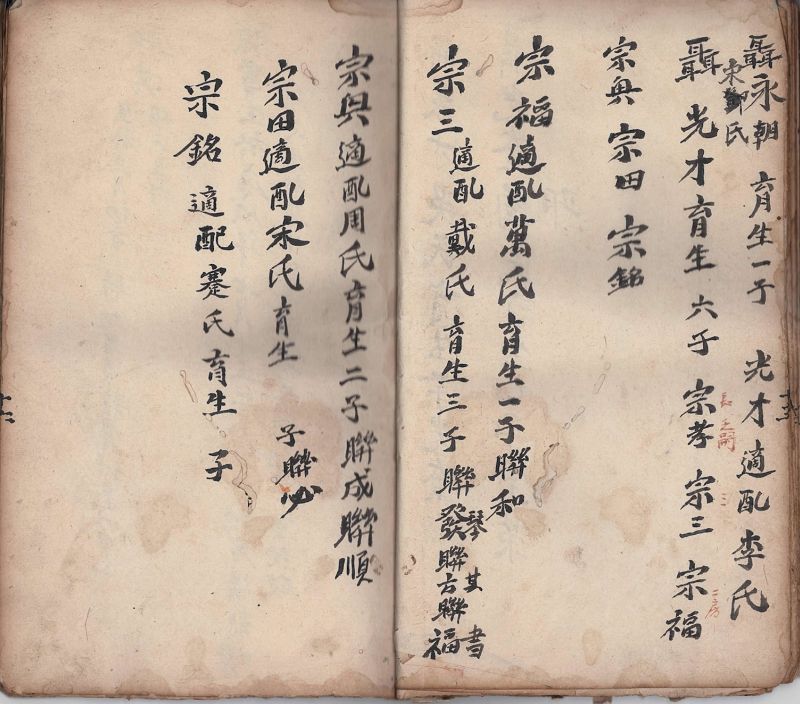 聶永朝 育生一子 光才適配李氏
宋鄭氏
聶光才育生六子 宗孝 宗三 宗福
長
三
二房
宗興 宗田 宗銘
宗福適配萬氏育生一子聯和
宗三適配戴氏育生三子聯發聯芳聯福
琴其書
宗興適配周氏育生二子聯成聯順
宗田適配宋氏育生 子聯必
宗銘適配蹇氏育生 子